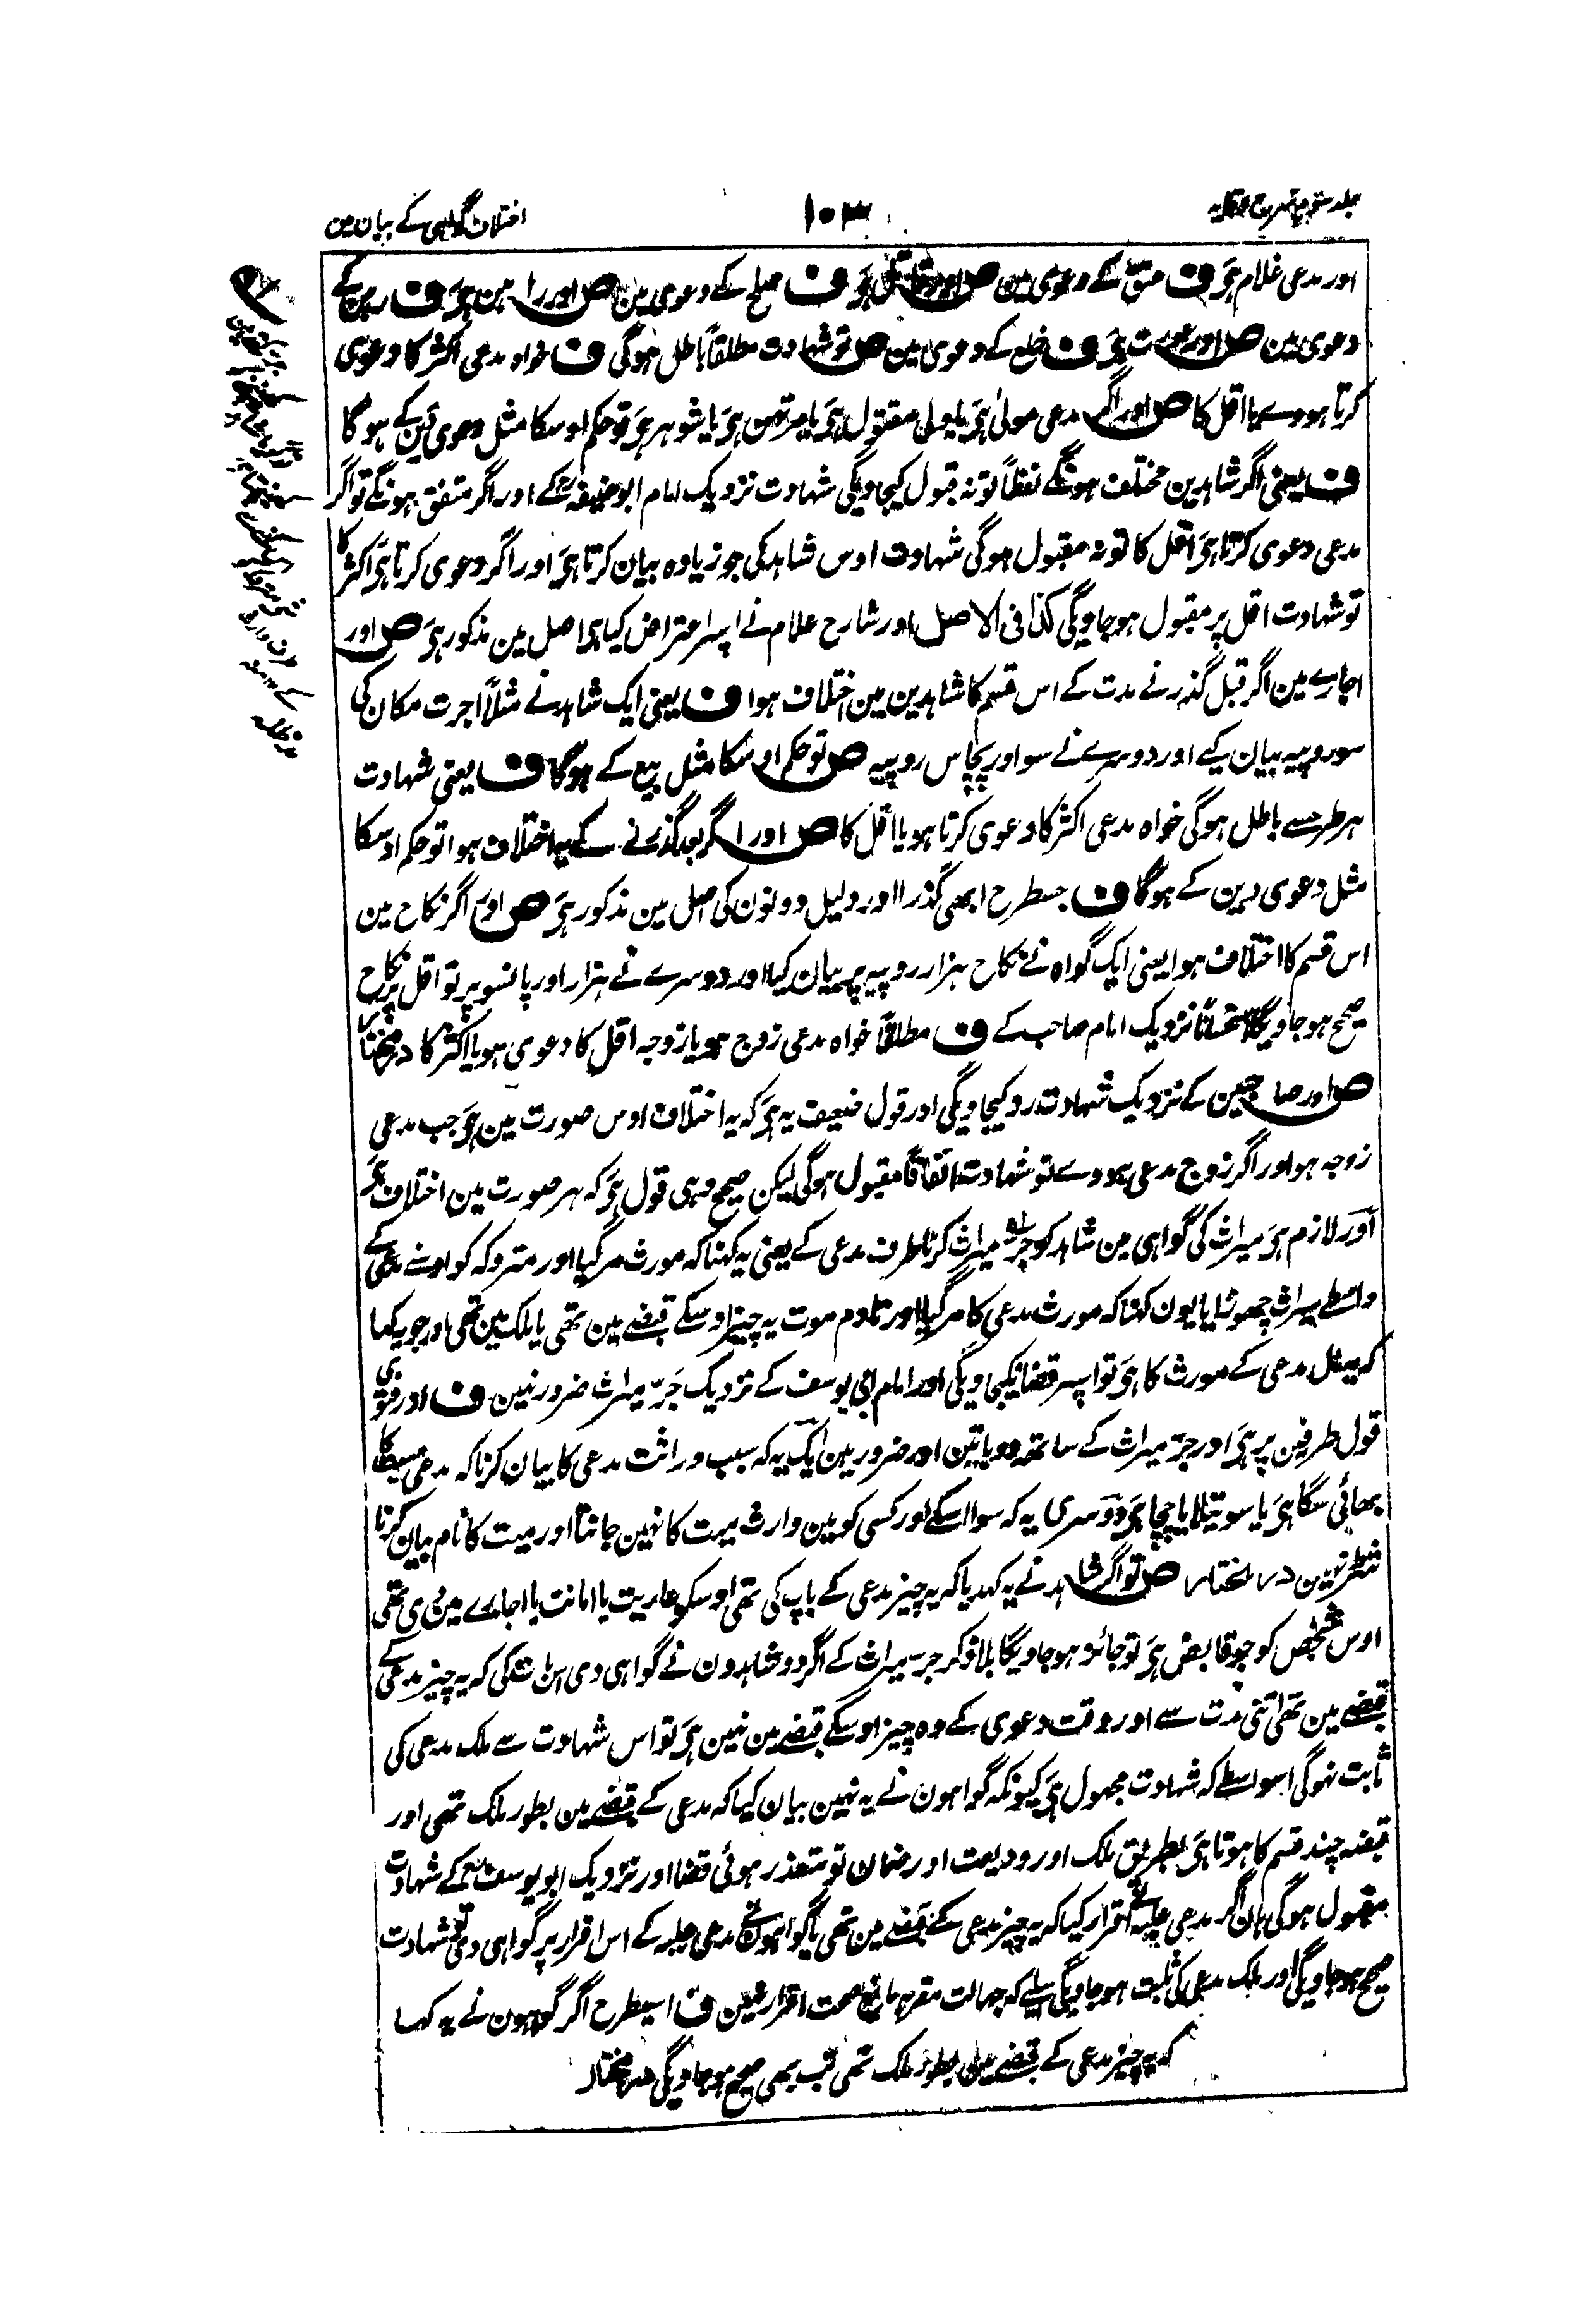 اختلاف گواہی کے بیان مین
۱۰۳
جلد سوم
اور مدعی غلام ہی ف عتق کے دعوی مین ص اور قاتل ہی ف صلح کے دعوی مین ص اور راہن ہی ف رہن کے
دعوی مین ص اور عورت ہی ف خلع کے دعوی مین ص تو شہادت مطلقاً باطل ہوگی ف خواہ مدعی اکثر کا دعوی
کرتا ہووے یا اقل کا ص اور اگر مدعی مولیٰ ہی یا ولی مقتول ہی یا مرتہن ہی یا شوہر ہی تو حکم اوسکا مثل دعوی دین کے ہوگا
ف یعنی اگر شاہدین مختلف ہونگے لفظاً تو نہ قبول کیجاویگی شہادت نزدیک امام ابوحنیفہؒ کے اور اگر متفق ہونگے تو اگر
مدعی دعوی کرتا ہی اقل کا تو نہ مقبول ہوگی شہادت اوس شاہد کی جو زیادہ بیان کرتا ہی اور اگر دعوی کرتا ہی اکثر کا
تو شہادت اقل پر مقبول ہوجاویگی کذا فی الاصل اور شارح علام نے اسپر اعتراض کیا ہی اصل مین مذکور ہی ص اور
اجارے مین اگر قبل گذرنے مدت کے اس قسم کا شاہدین مین اختلاف ہوا ف یعنی ایک شاہد نے مثلاً اجرت مکان کی
سو روپیہ بیان کیے اور دوسرے نے سو اور پچاس روپیہ ص تو حکم اوسکا مثل بیع کے ہوگا ف یعنی شہادت
ہر طرحسے باطل ہوگی خواہ مدعی اکثر کا دعوی کرتا ہو یا اقل کا ص اور اگر بعد گذرنے کے یہ اختلاف ہوا تو حکم اوسکا
مثل دعوی دین کے ہوگا ف جسطرح ابھی گذرا اور دلیل دونون کی اصل مین مذکور ہی ص اور اگر نکاح مین
اس قسم کا اختلاف ہوا یعنی ایک گواہ نے نکاح ہزار روپیہ پر بیان کیا اور دوسرے نے ہزار اور پانسو پر تو اقل پر نکاح
صحیح ہوجاویگا استحساناً نزدیک امام صاحب کے ف مطلقاً خواہ مدعی زوج ہو یا زوجہ اقل کا دعوی ہو یا اکثر کا درمختار
ص اور صاحبین کے نزدیک شہادت رد کیجاویگی اور قول ضعیف یہ ہی کہ یہ اختلاف اوس صورت مین ہی جب مدعی
زوجہ ہو اور اگر زوج مدعی ہووے تو شہادت اتفاقاً مقبول ہوگی لیکن صحیح وہی قول ہی کہ ہر صورت مین اختلاف ہی
اور لازم ہی میراث کی گواہی مین شاہد کو جرّ میراث کرنا طرف مدعی کے یعنی یہ کہنا کہ مورث مرگیا اور متروکہ کو اوسنے مدعی کے
واسطے میراث چھوڑا یا یون کہنا کہ مورث مدعی کا مرگیا اور تا دم موت یہ چیز اوسکے قبضے مین تھی یا ملک مین تھی اور جو یہ کہا
کہ یہ ملک مدعی کے مورث کا ہی تو اسپر قضا نکیجاویگی اور امام ابی یوسف کے نزدیک جَرّ میراث ضرور نہین ف اور فتویٰ
قول طرفین پر ہی اور جرّ میراث کے ساتھ دو باتین اور ضرور ہین ایک یہ کہ سبب وراثت مدعی کا بیان کرنا کہ مدعی میت کا
بھائی سگا ہی یا سوتیلا یا چچا ہی دوسری یہ کہ سوا اسکے اور کسی کو مین وارث میت کا نہین جانتا اور میت کا نام بیان کرنا
شرط نہین درالمختار ص تو اگر شاہد نے یہ کہدیا کہ یہ چیز مدعی کے باپ کی تھی اوسکو عاریت یا امانت یا اجارے مین دی تھی
اوس شخص کو جو قابض ہی تو جائز ہوجاویگا بلا ذکر جرّ میراث کے اگر دو شاہدون نے گواہی دی اس بات کی کہ یہ چیز مدعی کے
قبضے مین تھی اتنی مدت سے اور وقت دعوی کے وہ چیز اوسکے قبضے مین نہین ہی تو اس شہادت سے ملک مدعی کی
ثابت نہوگی اسواسطے کہ شہادت مجہول ہی کیونکہ گواہون نے یہ نہین بیان کیا کہ مدعی کے قبضے مین بطور ملک تھی اور
قبضہ چند قسم کا ہوتا ہی بطریق ملک اور ودیعت اور ضمان تو متعذر ہوئی قضا اور نزدیک ابو یوسفؒ کے شہادت
مقبول ہوگی ہان اگر مدعی علیہ نے اقرار کیا کہ یہ چیز مدعی کے قبضے مین تھی یا گواہون نے مدعی علیہ کے اس اقرار پر گواہی دی تو شہادت
صحیح ہوجاویگی اور ملک مدعی کی ثابت ہوجاویگی اسلیے کہ جہالت مقربہ مانع صحت اقرار نہین ف اسیطرح اگر گواہون نے یہ کہا
کہ یہ چیز مدعی کے قبضے مین بطور ملک تھی تب بھی صحیح ہوجاویگی درمختار